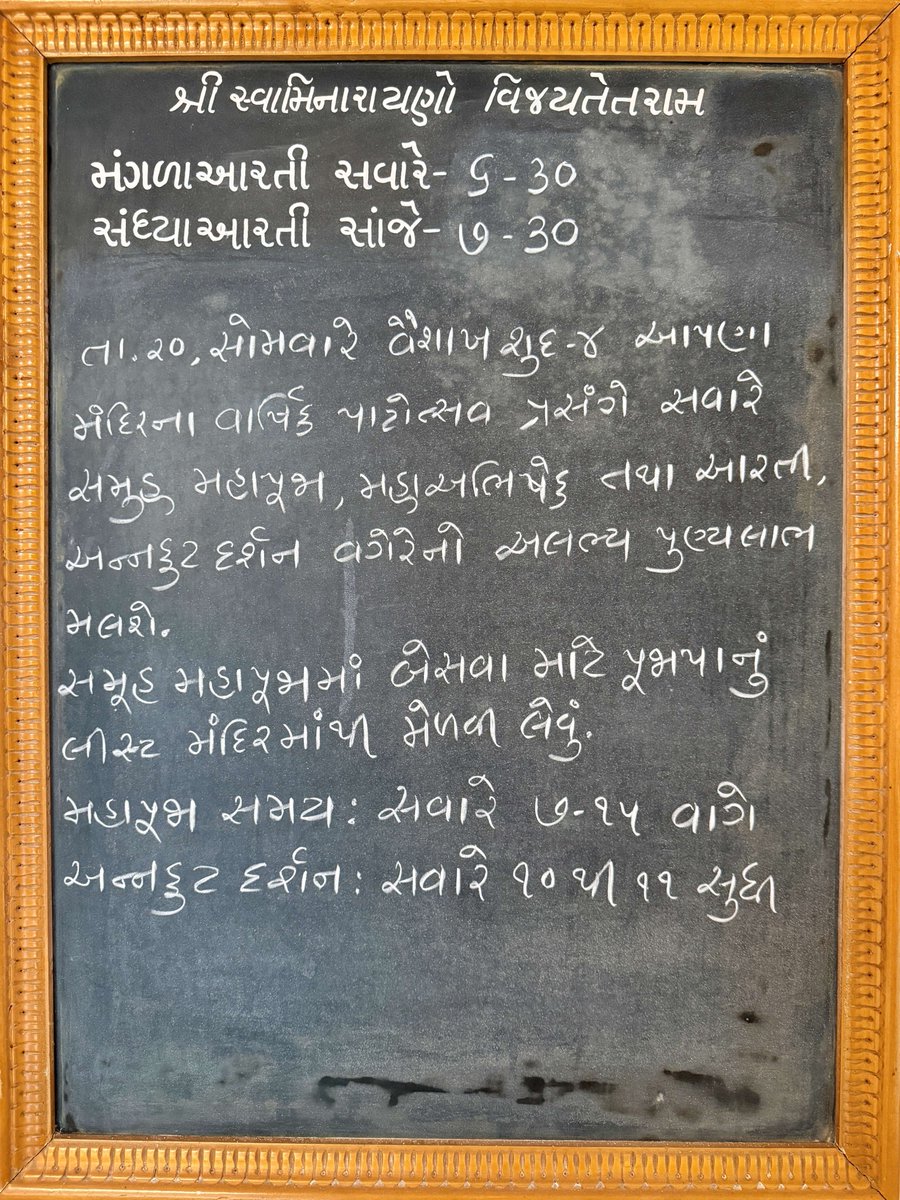 શ્રી સ્વામિનારાયણો વિજયતેતરામ
મંગળાઆરતી સવારે- ૬-૩૦
સંધ્યાઆરતી સાંજે- ૭-૩૦
તા.૨૦, સોમવારે વૈશાખ શુદ-૪ આપણા
મંદિરના વાર્ષિક પાટોત્સવ પ્રસંગે સવારે
સમુહ મહાપૂજા, મહાઅભિષેક તથા આરતી,
અન્નકુટ દર્શન વગેરેનો અલભ્ય પુણ્યલાભ
મલશે.
સમૂહ મહાપૂજામાં બેસવા માટે પૂજાપાનું
લીસ્ટ મંદિરમાંથી મેળવી લેવું.
મહાપૂજા સમય: સવારે ૭-૧૫ વાગે
અન્નકુટ દર્શન: સવારે ૧૦થી ૧૧ સુધી